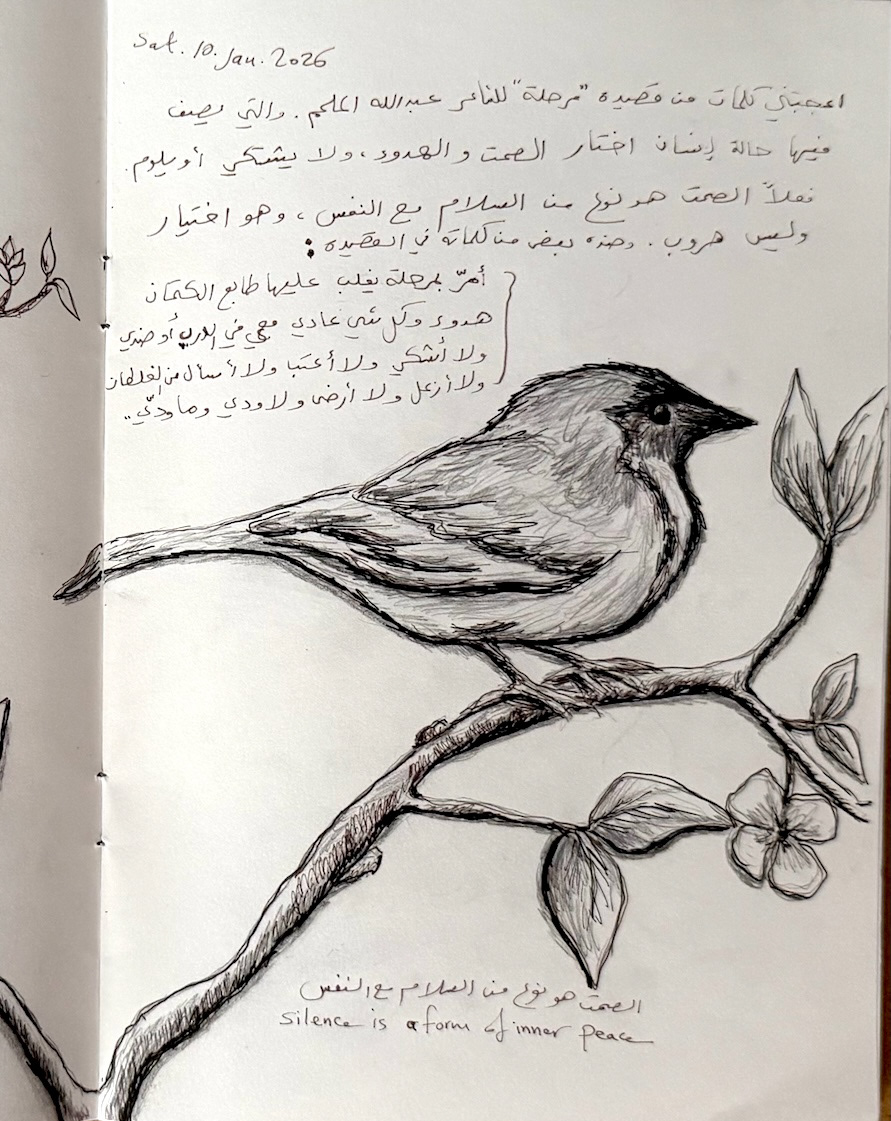 Sat. 10. Jan. 2026
اعجبتني كلمات من قصيده "مرحلة" للشاعر عبدالله الملحم. والتي يصف
فيها حالة إنسان اختار الصمت و الهدوء، ولا يشتكي أو يلوم.
فعلاً الصمت هو نوع من السلام مع النفس، وهو اختيار
وليس هروب. وهذه بعض من كلماته في القصيده:
أمرّ بمرحلة يغلب عليها طابع الكتمان
هدوء وكل شي عادي في الدرب أو
ولا أشتكي ولا أعتب ولا أسأل من الغلطان
ولا أزعل ولا أرضى ولا ودي وما ودّي..
الصمت هو نوع من السلام مع النفس
silence is a form of inner peace